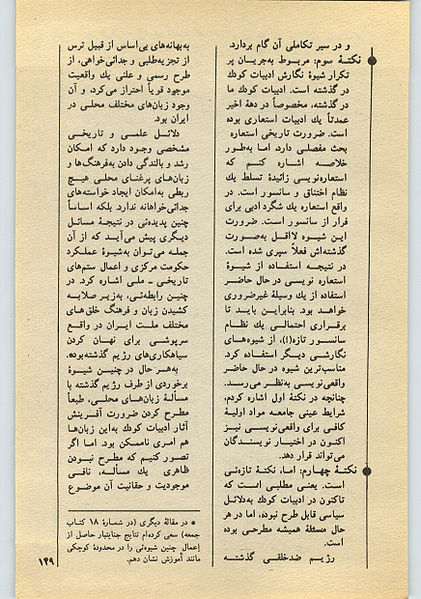 و در سیر تکاملی آن گام بردارد.
● نکتهٔ سوم: مربوط به‌جریان پر
تکرار شیوهٔ نگارش ادبیات کودك
در گذشته است. ادبیات کودك ما
در گذشته، مخصوصاً در دههٔ اخیر
عمدتاً یك ادبیات استعاری بوده
است. ضرورت تاریخی استعاره
بحث مفصلی دارد. اما به‌طور
خلاصه اشاره کنم که
استعاره‌نویسی زائیدهٔ تسلط یك
نظام اختناق و سانسور است. در
واقع استعاره یك شگرد ادبی برای
فرار از سانسور است. ضرورت
این شیوه لااقل به‌صورت
گذشته‌اش فعلاً سپری شده است.
در نتیجه استفاده از شیوهٔ
استعاره نویسی در حال حاضر
استفاده از یك وسیلهٔ غیرضروری
خواهد بود. بنابراین باید تا
برقراری احتمالی یك نظام
سانسور تازه(!)، از شیوه‌های
نگارشی دیگر استفاده کرد.
مناسب‌ترین شیوه در حال حاضر
واقعی‌نویسی به‌نظر می‌رسد.
چنانچه در نکتهٔ اول اشاره کردم،
شرایط عینی جامعه مواد اولیهٔ
کافی برای واقعی‌نویسی نیز
اکنون در اختیار نویسندگان
می‌تواند قرار دهد.
● نکتهٔ چهارم: اما، نکتهٔ تازه‌ئی
است. یعنی مطلبی است که
تاکنون در ادبیات کودك به‌دلائل
سیاسی قابل طرح نبوده، اما در هر
حال مسئلهٔ همیشه مطرحی بوده
است.
رژیم ضدخلقی گذشته
به‌بهانه‌های بی‌اساس از قبیل ترس
از تجزیه‌طلبی و جدائی‌خواهی، از
طرح رسمی و علنی یك واقعیت
موجود قویاً احتراز می‌کرد، و آن
وجود زبان‌های مختلف محلی در
ایران بود.
دلائل علمی و تاریخی
مشخصی وجود دارد که امکان
رشد و بالندگی دادن به‌فرهنگ‌ها و
زبان‌های پرغنای محلی هیچ
ربطی به‌امکان ایجاد خواسته‌های
جدائی‌خواهانه ندارد. بلکه اساساً
چنین پدیده‌ئی در نتیجهٔ مسائل
دیگری پیش می‌آید که از آن
جمله می‌توان به‌شیوهٔ عملکرد
حکومت مرکزی و اعمال ستم‌های
تاریخی ـ ملی اشاره کرد. در
چنین رابطه‌ئی، به‌زیر صلابه
کشیدن زبان و فرهنگ خلق‌های
مختلف ملت ایران در واقع
سرپوشی برای نهان کردن
سیاهکاری‌های رژیم گذشته‌بوده.
به‌هر حال در چنین شیوهٔ
برخوردی از طرف رژیم گذشته با
مسألهٔ زبان‌های محلی، طبعاً
مطرح کردن ضرورت آفرینش
آثار ادبیات کودك به‌این زبان‌ها
هم امری ناممکن بود. اما اگر
تصور کنیم که مطرح نبودن
ظاهری یك مسأله، نافی
موجودیت و حقانیت آن موضوع
* در مقالهٔ دیگری (در شمارهٔ ۱۸ کتاب
جمعه) سعی کرده‌ام نتایج جنایتبار حاصل از
اِعمال چنین شیوه‌ئی را در محدودهٔ کوچکی
مانند آموزش نشان دهم.
۱۴۹